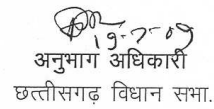 19-7-09
अनुभाग अधिकारी
छत्तीसगढ़ विधान सभा.